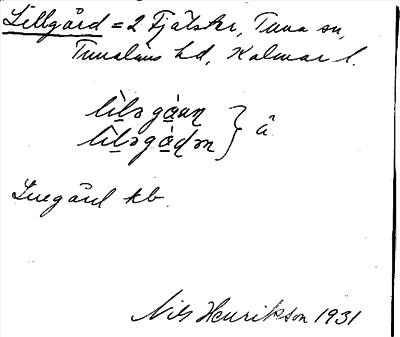 Lillgård = 2 Fjälster, Tuna sn,
Tunaläns hd, Kalmar l.
lìlǝgà̱ɯn } å
lìlǝgàḍǝn
Luegård kb.
Nils Henrikson 1931